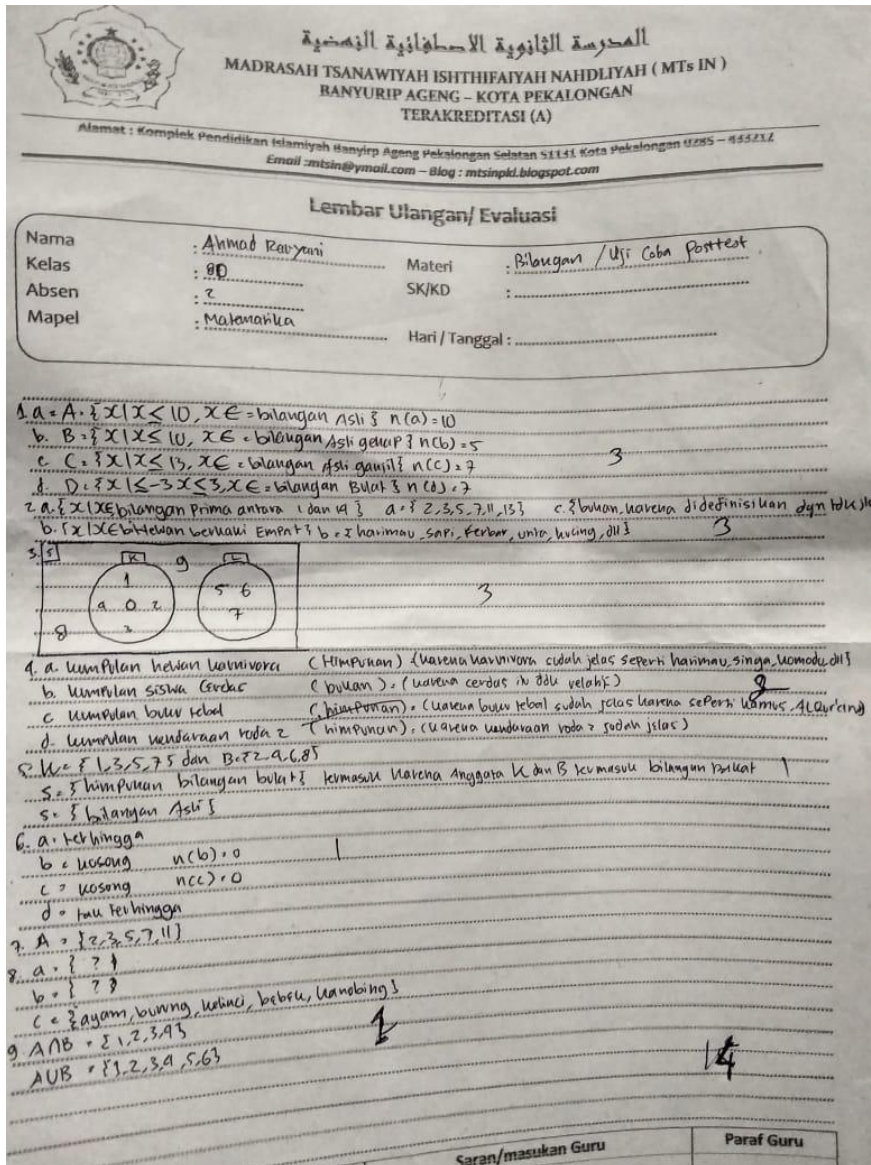 المدرسة الثانوية الإصطفائية النهضية
MADRASAH TSANAWIYAH ISHTHIFAIYAH NAHDLIYAH ( MTs IN )
BANYURIP AGENG – KOTA PEKALONGAN
TERAKREDITASI (A)
Alamat : Komplek Pendidikan Islamiyah Banyirp Ageng Pekalongan Selatan 51131 Kota Pekalongan 0285 –
Email :mtsin@ymail.com – Blog : mtsinpkl.blogspot.com
Lembar Ulangan/ Evaluasi
Nama : Ahmad Materi : Bilangan / Uji Coba Posttest
Kelas : 8D SK/KD :
Absen : 2
Mapel : Matematika Hari / Tanggal :
1. a = A = {x | x ≤ 10, x ∈ = bilangan Asli} n(a) = 10
b. B = {x | x ≤ 10, x ∈ = bilangan Asli genap} n(b) = 5
c. C = {x | x ≤ 13, x ∈ = bilangan Asli ganjil} n(c) = 7 3
d. D = {x | ≤ -3 x ≤ 3, x ∈ = bilangan Bulat} n(d) = 7
2. a. {x | x ∈ bilangan Prima antara 1 dan 14} a = {2, 3, 5, 7, 11, 13} c. {bukan, karena didefinisikan dgn tdk
b. {x | x ∈ Hewan berkaki Empat} b = harimau, sapi, kerbar, unta, kucing, dll} 3
3. S K 9 L
1 5 6
4 0 2 7 3
8 3
4. a. kumpulan hewan karnivora (Himpunan) (karena karnivora sudah jelas seperti harimau, singa, komodo dll}
b. kumpulan siswa Cerdas (bukan) = (karena cerdas 2
c. kumpulan buku tebal (himpunan) = (karena buku tebal sudah jelas karena seperti kamus, ALQur'an)
d. kumpulan kendaraan roda 2 (himpunan). (karena kendaraan roda 2 sudah jelas)
5. K = {1, 3, 5, 7} dan B = {2, 4, 6, 8}
S = {himpunan bilangan bulat} termasuk karena Anggota K dan B termasuk bilangan Bulat 1
S = {bilangan Asli}
6. a = terhingga
b = kosong n(b) = 0 1
c = kosong n(c) = 0
d = tak terhingga
7. A = {2, 3, 5, 7, 11}
8. a = { ? }
b = { ? }
c = {ayam, burung, kelinci, bebek, kambing}
9. A∩B = {1, 2, 3, 4} 1
A∪B = {1, 2, 3, 4, 5, 6}
14
Saran/masukan Guru Paraf Guru